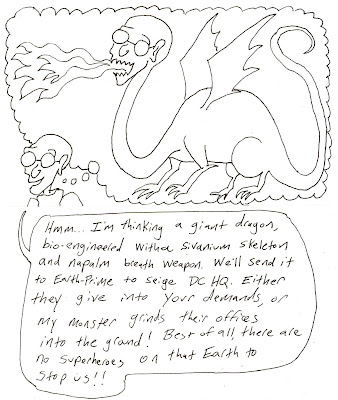 Hmm... I'm thinking a giant dragon,
bio-engineered with a Sivanium skeleton
and napalm breath weapon. We'll send it
to Earth-Prime to seige DC HQ. Either
they give into your demands, or
my monster grinds their offices
into the ground! Best of all, there are
no superheroes on that Earth to
stop us!!